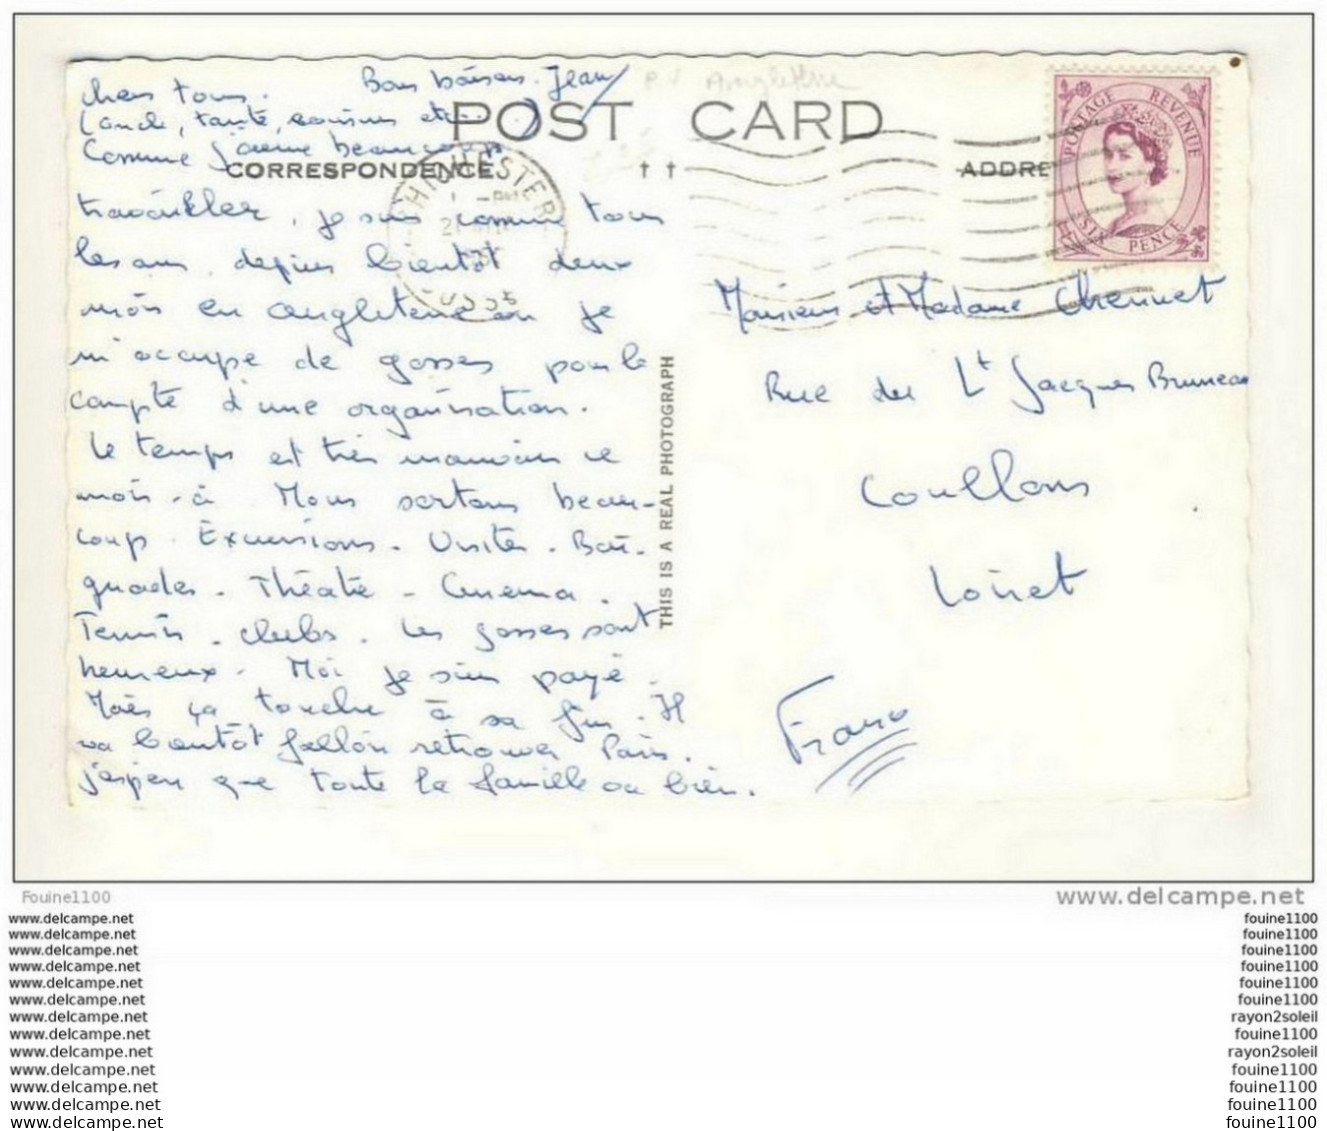 Chers tous. Bons baisers. Jean
(oncle, tante, cousins etc...)
P.V Angleterre
POST CARD
Comme j'aime beaucoup
CORRESPONDENCE
ADDRE
POSTAGE REVENUE
SIX PENCE
CHICHESTER
SUSSE
, je suis comme tous
les ans depuis bientôt deux
mois en angleterre où je
m'occupe de gosses pour le
compte d'une organisation.
Le temps est très mauvais ce
mois-ci. Nous sortons beau-
coup. Excursions. Visites. Bai-
gnades. Théâtre - Cinéma.
Tennis. clubs. Les gosses sont
heureux. Moi je suis payé.
Mais ça touche à sa fin. Il
va bientôt falloir retrouver Paris.
j'espère que toute la famille va bien.
THIS IS A REAL PHOTOGRAPH
Monsieur et Madame Chennet
Rue du Lt Jacques Bruneau
Coullons
Loiret
France
Fouine1100
www.delcampe.net
www.delcampe.net
www.delcampe.net
www.delcampe.net
www.delcampe.net
www.delcampe.net
www.delcampe.net
www.delcampe.net
www.delcampe.net
www.delcampe.net
www.delcampe.net
www.delcampe.net
www.delcampe.net
www.delcampe.net
fouine1100
fouine1100
fouine1100
fouine1100
fouine1100
fouine1100
rayon2soleil
fouine1100
rayon2soleil
fouine1100
fouine1100
fouine1100
fouine1100